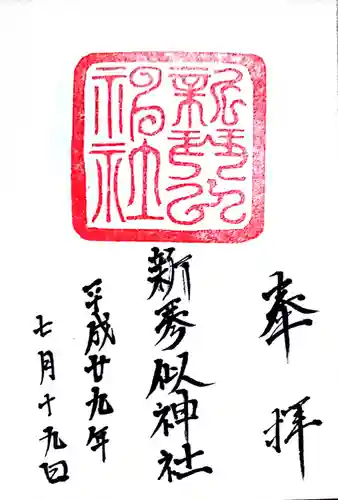 奉拝
新琴似神社
平成廿九年
七月十九日
新琴似
神社